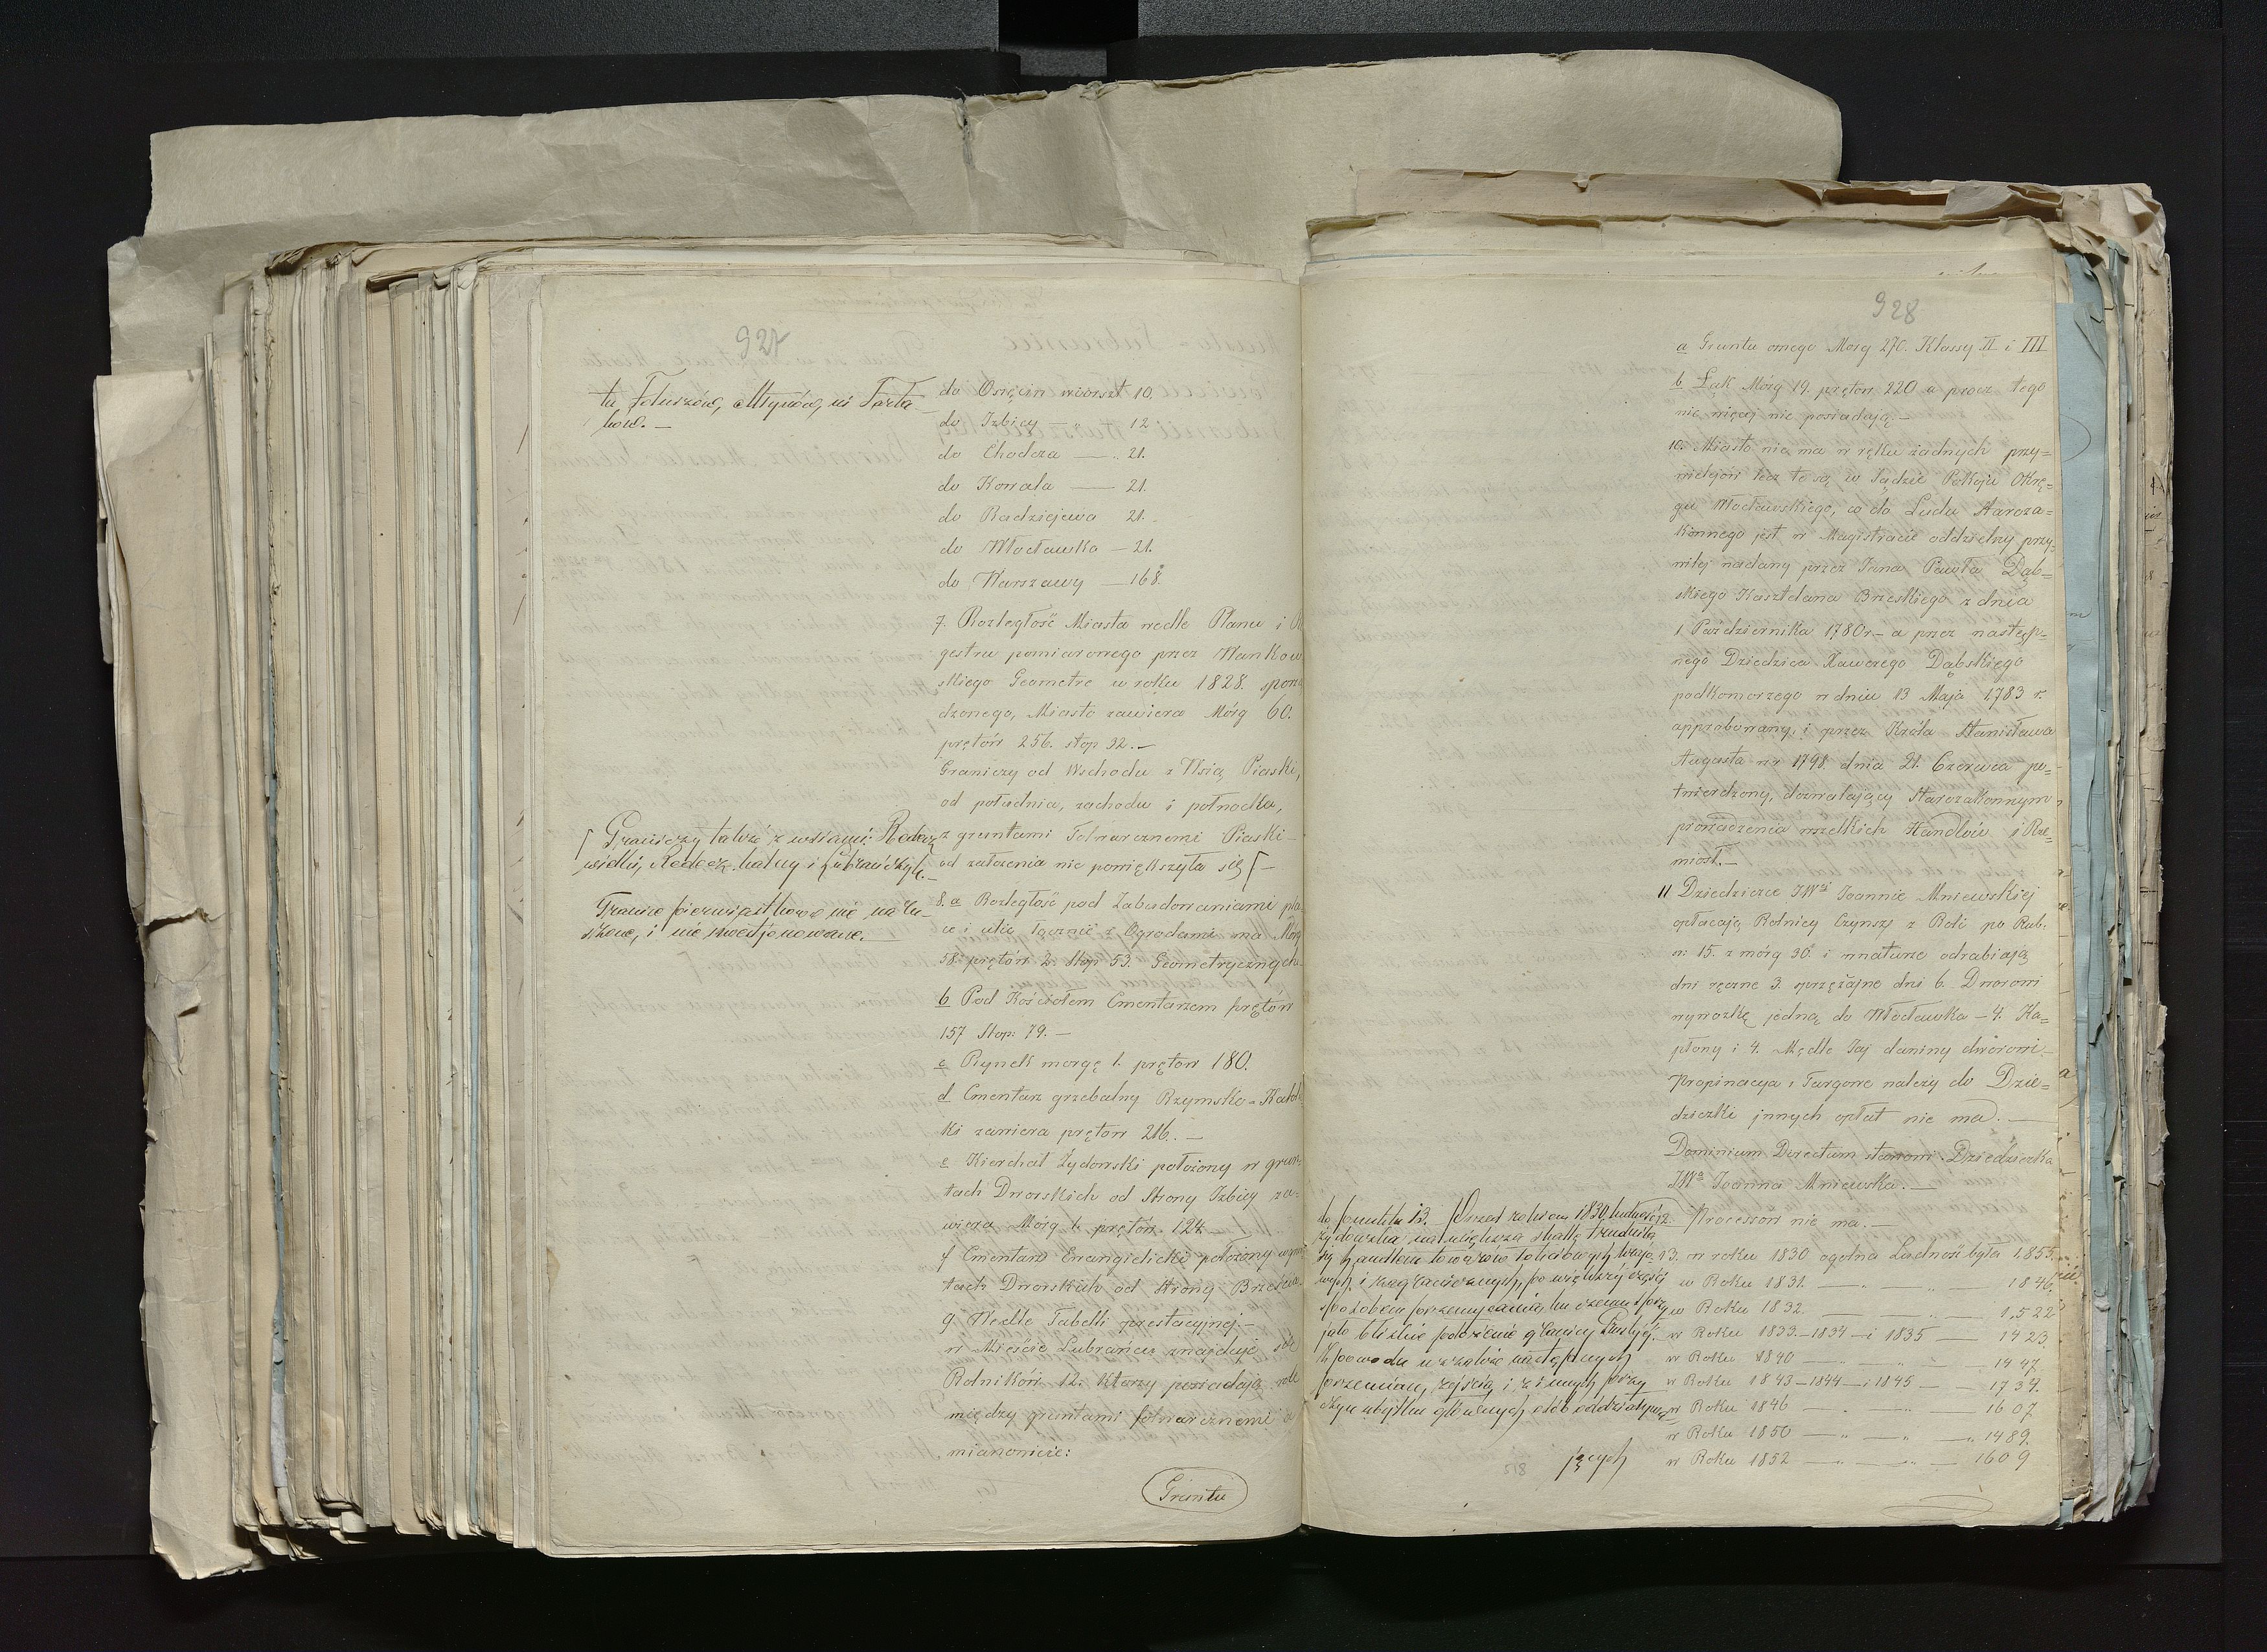 927
tu Foluszów, Młynów, ni Tarta
ków. —
do Osięcin wiorszt 10.
do Izbicy — „ 12
do Chodcza — „ 21.
do Kowala — 21.
do Radziejewa 21.
do Włocławka — 21.
do Warszawy — 168.
7. Rozległość Miasta wedle Planu i
gestru pomiarowego przez Wankow
skiego Geometrę w roku 1828. sporzą
dzonego, Miasto zawiera Mórg 60.
prętów 256. stop 32. —
Graniczy od Wschodu z Wsią Piaski,
od południa, zachodu i północka,
z gruntami Folwarcznemi Piaski —
od założenia nie powiększyła się [ —
[ Graniczy także z wsiami:
i Lubrańczyk. —
Granice pierwiastkowe nie
i nie kwestjonowane. —
8. a Rozległość pod Zabudowaniami pla
ce i ulic łącznie z Ogrodami ma Mórg
58. prętów 2. Stop 53. Geometrycznych.
b Pod Kościołem Cmentarzem prętów
157 Stop. 79. —
c Rynek morgę 1. prętów 180.
d Cmentarz grzebalny Rzymsko = Katoli
ki zawiera prętów 216. —
e Kierchał Żydowski położony w grun=
tach Dworskich od Strony Izbicy za=
wiera Mórg 1. prętów. 124.
f Cmentarz Ewangielicki położony w grun
tach Dworskich od Strony Brześcia
g Wedle Tabelli prestacyjnej. —
w Mieście Lubrańcu znajduje się
Rolników 12. którzy posiadają role
między gruntami folwarcznemi a
mianowicie:
Gruntu
928
a Gruntu ornego Morg 270. Klassy II i III
b Łąk Mórg 19. prętów 220 a procz tego
nic więcej nie posiadają. —
10. Miasto nie ma w ręku żadnych przy=
wielejów lecz te są w Sądzie Pokoju Okrę=
gu Włocławskiego, co do Ludu Staroza=
konnego jest w Magistracie oddzielny przy=
wilej nadany przez Jana Pawła Dąb=
skiego Kasztelana Brzeskiego z dnia
1 Października 1780 r — a przez następ=
nego Dziedzica Xawerego Dąbskiego
podkomorzego w dniu 13 Maja 1783 r.
approbowany, i przez Króla Stanisława
Augusta w r 1798. dnia 21. Czerwca po=
twierdzony, dozwalający Starozakonnym
prowadzenia wszelkich Handlów i Rze=
miosł. —
11 Dziedziczce JWej Joannie Mniewskiej
opłacają Rolnicy Czynsz z Roli po Rub.
sr: 15. z mórg 30. i w naturze odrabiają
dni ręczne 3. sprzężajne dni 6. Dworowi
wywozkę jedną do Włocławka — 4. Ka=
płony i 4. Mędle Jaj daniny dworowi —
Propinacya i Targowe należy do Dzie=
dziczki innych opłat nie ma. —
Dominium Directum stanowi Dziedziczka
JWa Joanna Mniewska. —
12. Processów nie ma. —
do punktu 13. Przed rokiem 1830 ludność
żydowska na większą skalę trudniła
się handlem towarów
i po większej części
sposobem przemycania, ku czemu sprzy
jało bliskie położenie granicy Pruskiej.
Z powodu zaś następnych
przemian, zajścia i z innych przy
czyn ubytku głównych osób oddziaływa=
jących
13. w roku 1830 ogólna Ludność była 1,855.
w Roku 1831. — „ — 1846,
w Roku 1832. — „ — 1,522
w Roku 1833 — 1834 — i 1835 — 1423
w Roku 1840 — „ — 1447
w Roku 1843 — 1844 — i 1845 — 1734.
w Roku 1846 — „ — 1607
w Roku 1850 — „ — „ 1489.
w Roku 1852 — „ — 1609
518